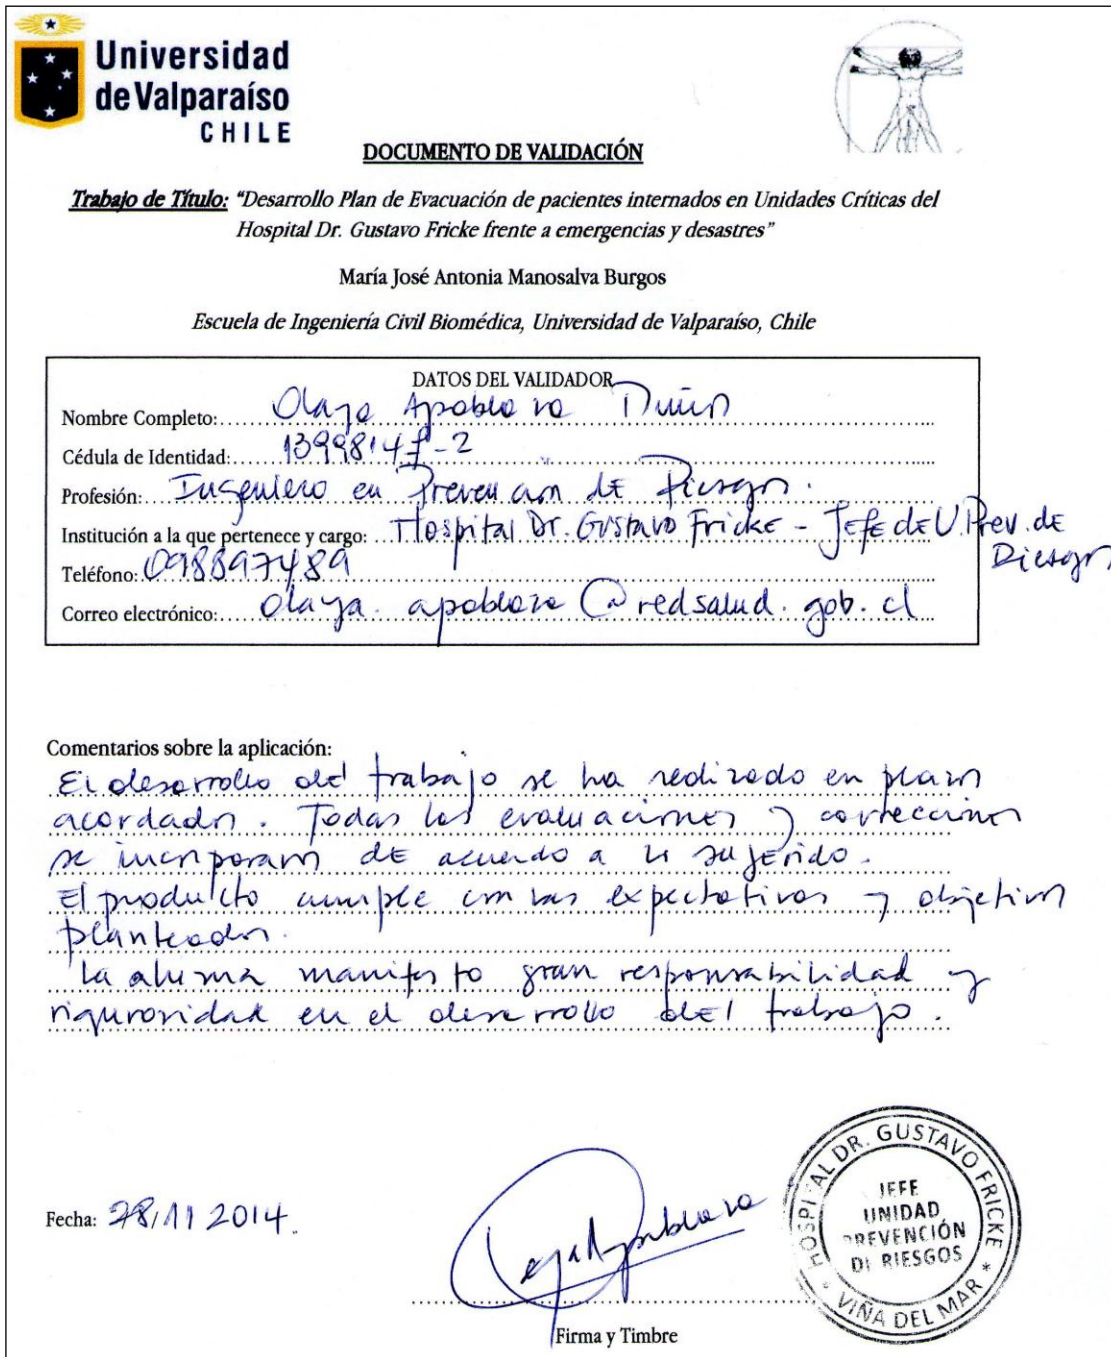 Universidad
de Valparaíso
CHILE
DOCUMENTO DE VALIDACIÓN
Trabajo de Título: "Desarrollo Plan de Evacuación de pacientes internados en Unidades Críticas del
Hospital Dr. Gustavo Fricke frente a emergencias y desastres"
María José Antonia Manosalva Burgos
Escuela de Ingeniería Civil Biomédica, Universidad de Valparaíso, Chile
DATOS DEL VALIDADOR
Nombre Completo: Olaya Apablaza
Cédula de Identidad:
Profesión: Ingeniero en Prevencion de Riesgos.
Institución a la que pertenece y cargo: Hospital Dr. Gustavo Fricke - Jefe de U. Prev. de
Riesgos
Teléfono: 098897489
Correo electrónico: olaya.apablaza@redsalud.gob.cl
Comentarios sobre la aplicación:
El desarrollo del trabajo se ha realizado en plazos
acordados. Todas las evaluaciones y correcciones
se incorporaron de acuerdo a lo sugerido.
El producto cumple con las expectativas y objetivos
planteados.
La alumna manifesto gran responsabilidad y
rigurosidad en el desarrollo del trabajo.
Fecha: 28/11 2014.
HOSPITAL DR. GUSTAVO FRICKE
JEFE
UNIDAD
PREVENCIÓN
DE RIESGOS
* VIÑA DEL MAR *
Firma y Timbre